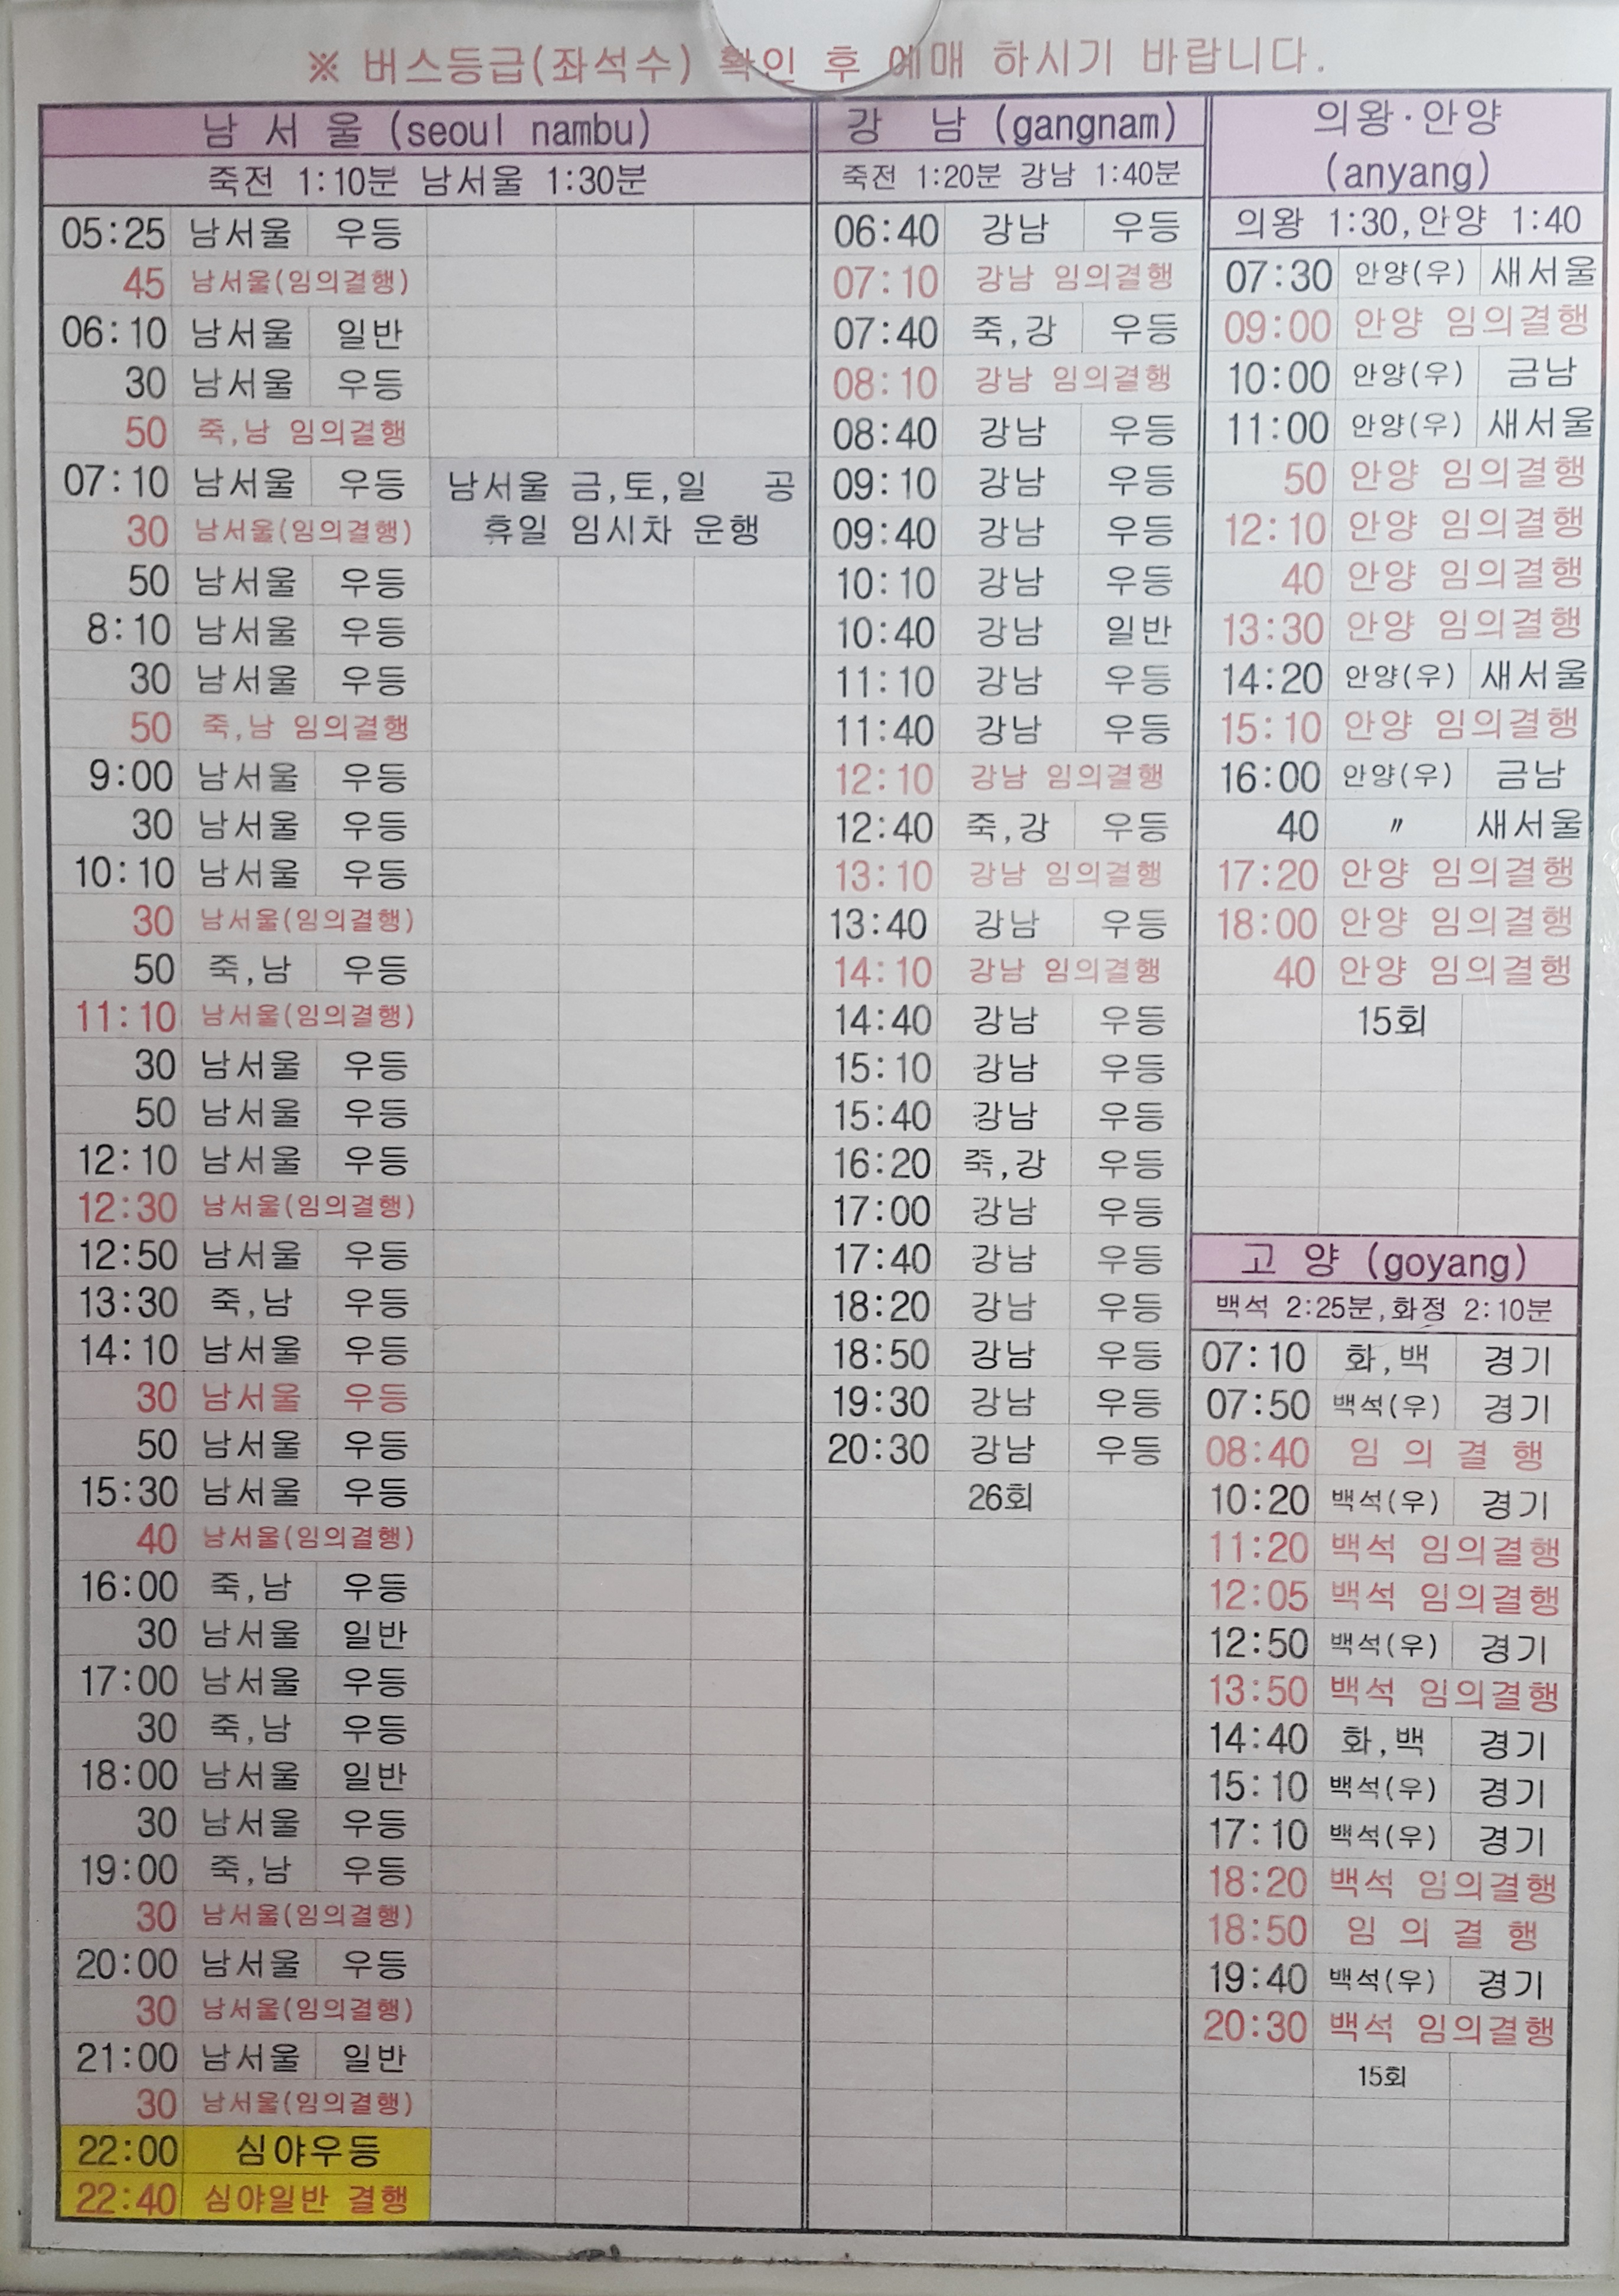 ※ 버스등급(좌석수) 확인 후 예매 하시기 바랍니다.
남 서 울 (seoul nambu)
죽전 1:10분 남서울 1:30분
05:25 남서울 우등
45 남서울(임의결행)
06:10 남서울 일반
30 남서울 우등
50 죽,남 임의결행
07:10 남서울 우등
30 남서울(임의결행)
50 남서울 우등
8:10 남서울 우등
30 남서울 우등
50 죽,남 임의결행
9:00 남서울 우등
30 남서울 우등
10:10 남서울 우등
30 남서울(임의결행)
50 죽,남 우등
11:10 남서울(임의결행)
30 남서울 우등
50 남서울 우등
12:10 남서울 우등
12:30 남서울(임의결행)
12:50 남서울 우등
13:30 죽,남 우등
14:10 남서울 우등
30 남서울 우등
50 남서울 우등
15:30 남서울 우등
40 남서울(임의결행)
16:00 죽,남 우등
30 남서울 일반
17:00 남서울 우등
30 죽,남 우등
18:00 남서울 일반
30 남서울 우등
19:00 죽,남 우등
30 남서울(임의결행)
20:00 남서울 우등
30 남서울(임의결행)
21:00 남서울 일반
30 남서울(임의결행)
22:00 심야우등
22:40 심야일반 결행
남서울 금,토,일 공
휴일 임시차 운행
강 남 (gangnam)
죽전 1:20분 강남 1:40분
06:40 강남 우등
07:10 강남 임의결행
07:40 죽,강 우등
08:10 강남 임의결행
08:40 강남 우등
09:10 강남 우등
09:40 강남 우등
10:10 강남 우등
10:40 강남 일반
11:10 강남 우등
11:40 강남 우등
12:10 강남 임의결행
12:40 죽,강 우등
13:10 강남 임의결행
13:40 강남 우등
14:10 강남 임의결행
14:40 강남 우등
15:10 강남 우등
15:40 강남 우등
16:20 죽,강 우등
17:00 강남 우등
17:40 강남 우등
18:20 강남 우등
18:50 강남 우등
19:30 강남 우등
20:30 강남 우등
26회
의왕·안양
(anyang)
의왕 1:30,안양 1:40
07:30 안양(우) 새서울
09:00 안양 임의결행
10:00 안양(우) 금남
11:00 안양(우) 새서울
50 안양 임의결행
12:10 안양 임의결행
40 안양 임의결행
13:30 안양 임의결행
14:20 안양(우) 새서울
15:10 안양 임의결행
16:00 안양(우) 금남
40 〃 새서울
17:20 안양 임의결행
18:00 안양 임의결행
40 안양 임의결행
15회
고 양 (goyang)
백석 2:25분,화정 2:10분
07:10 화,백 경기
07:50 백석(우) 경기
08:40 임 의 결 행
10:20 백석(우) 경기
11:20 백석 임의결행
12:05 백석 임의결행
12:50 백석(우) 경기
13:50 백석 임의결행
14:40 화,백 경기
15:10 백석(우) 경기
17:10 백석(우) 경기
18:20 백석 임의결행
18:50 임 의 결 행
19:40 백석(우) 경기
20:30 백석 임의결행
15회